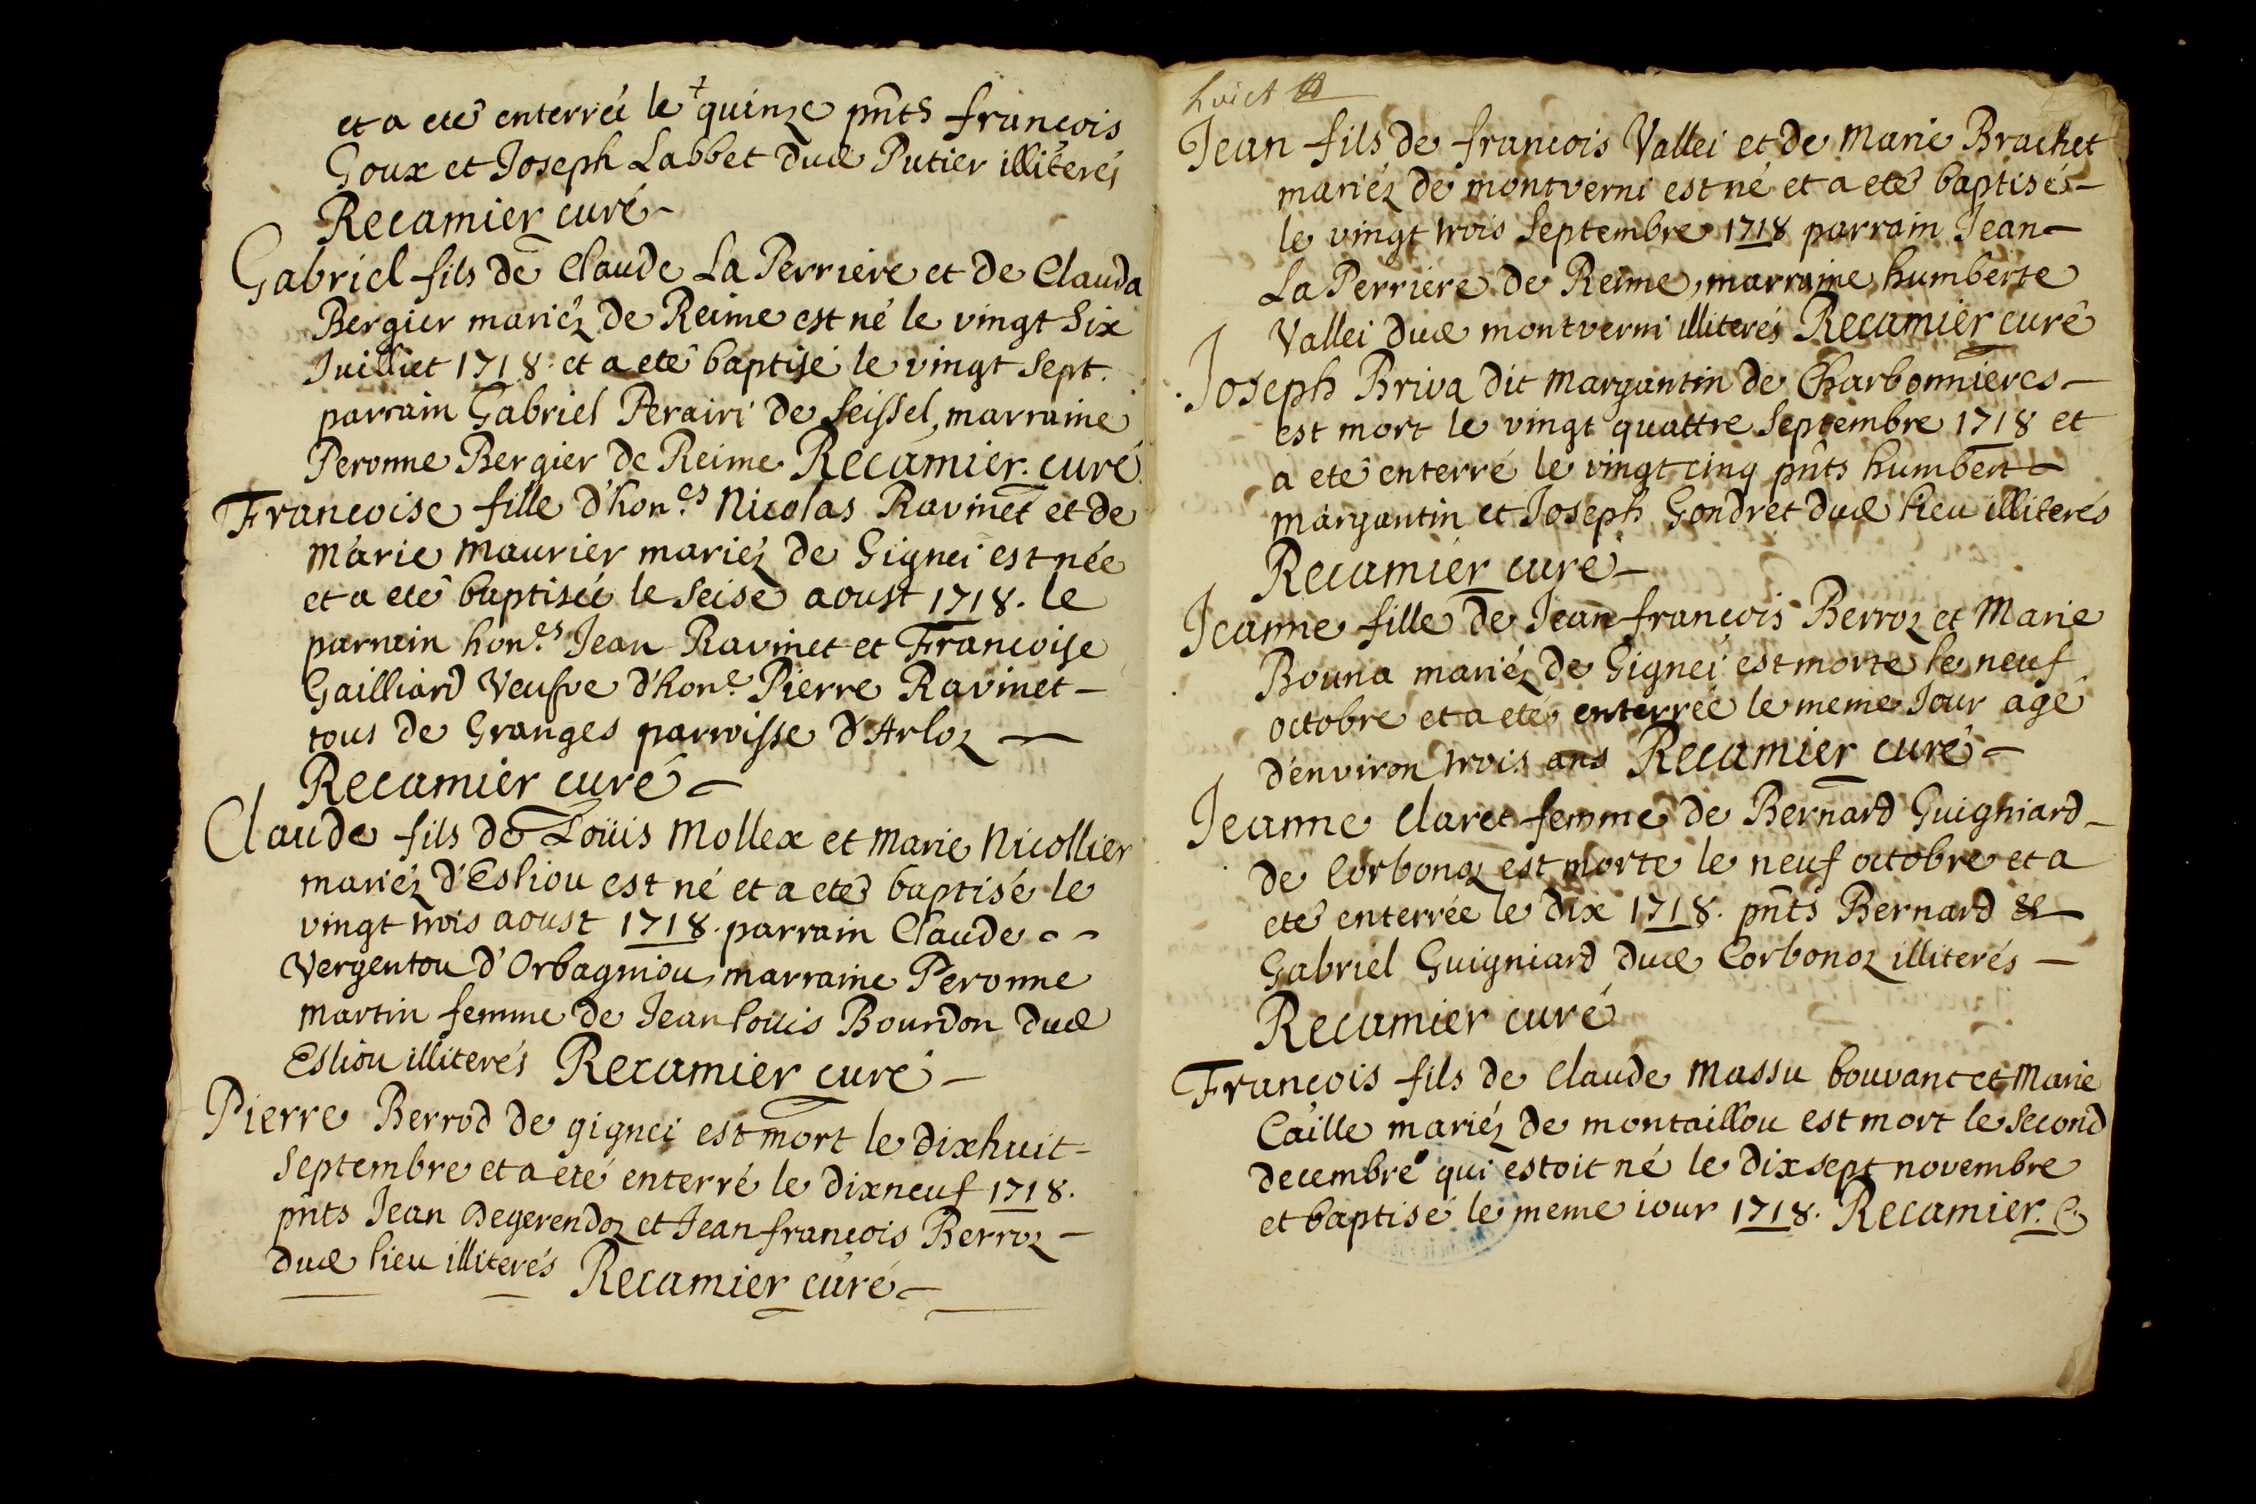 et a eté enterreé le quinze pñts françois
Goux et Joseph Labbet dud Putier illiterés
Recamier curé
Gabriel fils de Claude La Perriere et de Clauda
Bergier mariéz de Reime est né le vingt Six
Juilliet 1718. et a eté baptisé le vingt sept.
parrain Gabriel Perairi de Seissel, marraine
Peronne Bergier de Reime Recamier. curé
Francoise fille d'hon.es Nicolas Ravinet et de
Marie Maurier mariéz de Gignei est née
et a eté baptiseé le seise aoust 1718. le
parrain hon.es Jean Ravinet et Francoise
Gailliard Veufve d'hon.e Pierre Ravinet
tous de Granges parroisse d'Arloz
Recamier curé
Claude fils de Loüis Mollex et Marie Nicollier
mariéz d'Esliou est né et a eté baptisé le
vingt trois aoust 1718. parrain Claude
Vergentou d'Orbagniou, marraine Peronne
Martin femme de Jean loüis Bourdon dud
Esliou illiterés Recamier curé
Pierre Berrod de gignei est mort le dixhuit
Septembre et a eté enterré le dixneuf 1718.
pñts Jean Degerendoz et Jean françois Berroz
dud lieu illiterés Recamier curé
huict
Jean fils de francois Vallei et de Marie Brachet
mariéz de montverni est né et a eté baptisé
le vingt trois Septembre 1718 parrain Jean
La Perriere de Reime, marraine humberte
Vallei dud montverni illiterés Recamier curé
Joseph Briva dit Margantin de Charbonnieres
est mort le vingt quattre Septembre 1718 et
a eté enterré le vingt cinq pñts humbert
Margantin et Joseph Gondret dud lieu illiterés
Recamier curé
Jeanne fille de Jean françois Berroz et Marie
Bouna mariéz de Gignei est morte le neuf
octobre et a eté enterrée le meme Jour agé
d'environ trois ans Recamier curé
Jeanne Claret femme de Bernard Guigniard
de Corbonoz est morte le neuf octobre et a
eté enterrée le dix 1718. pñts Bernard &
Gabriel Guigniard dud Corbonoz illiterés
Recamier curé
Francois fils de Claude Massu bouvant et Marie
Caille mariéz de montaillou est mort le second
decembre qui estoit né le dixsept novembre
et baptisé le meme iour 1718. Recamier. C.